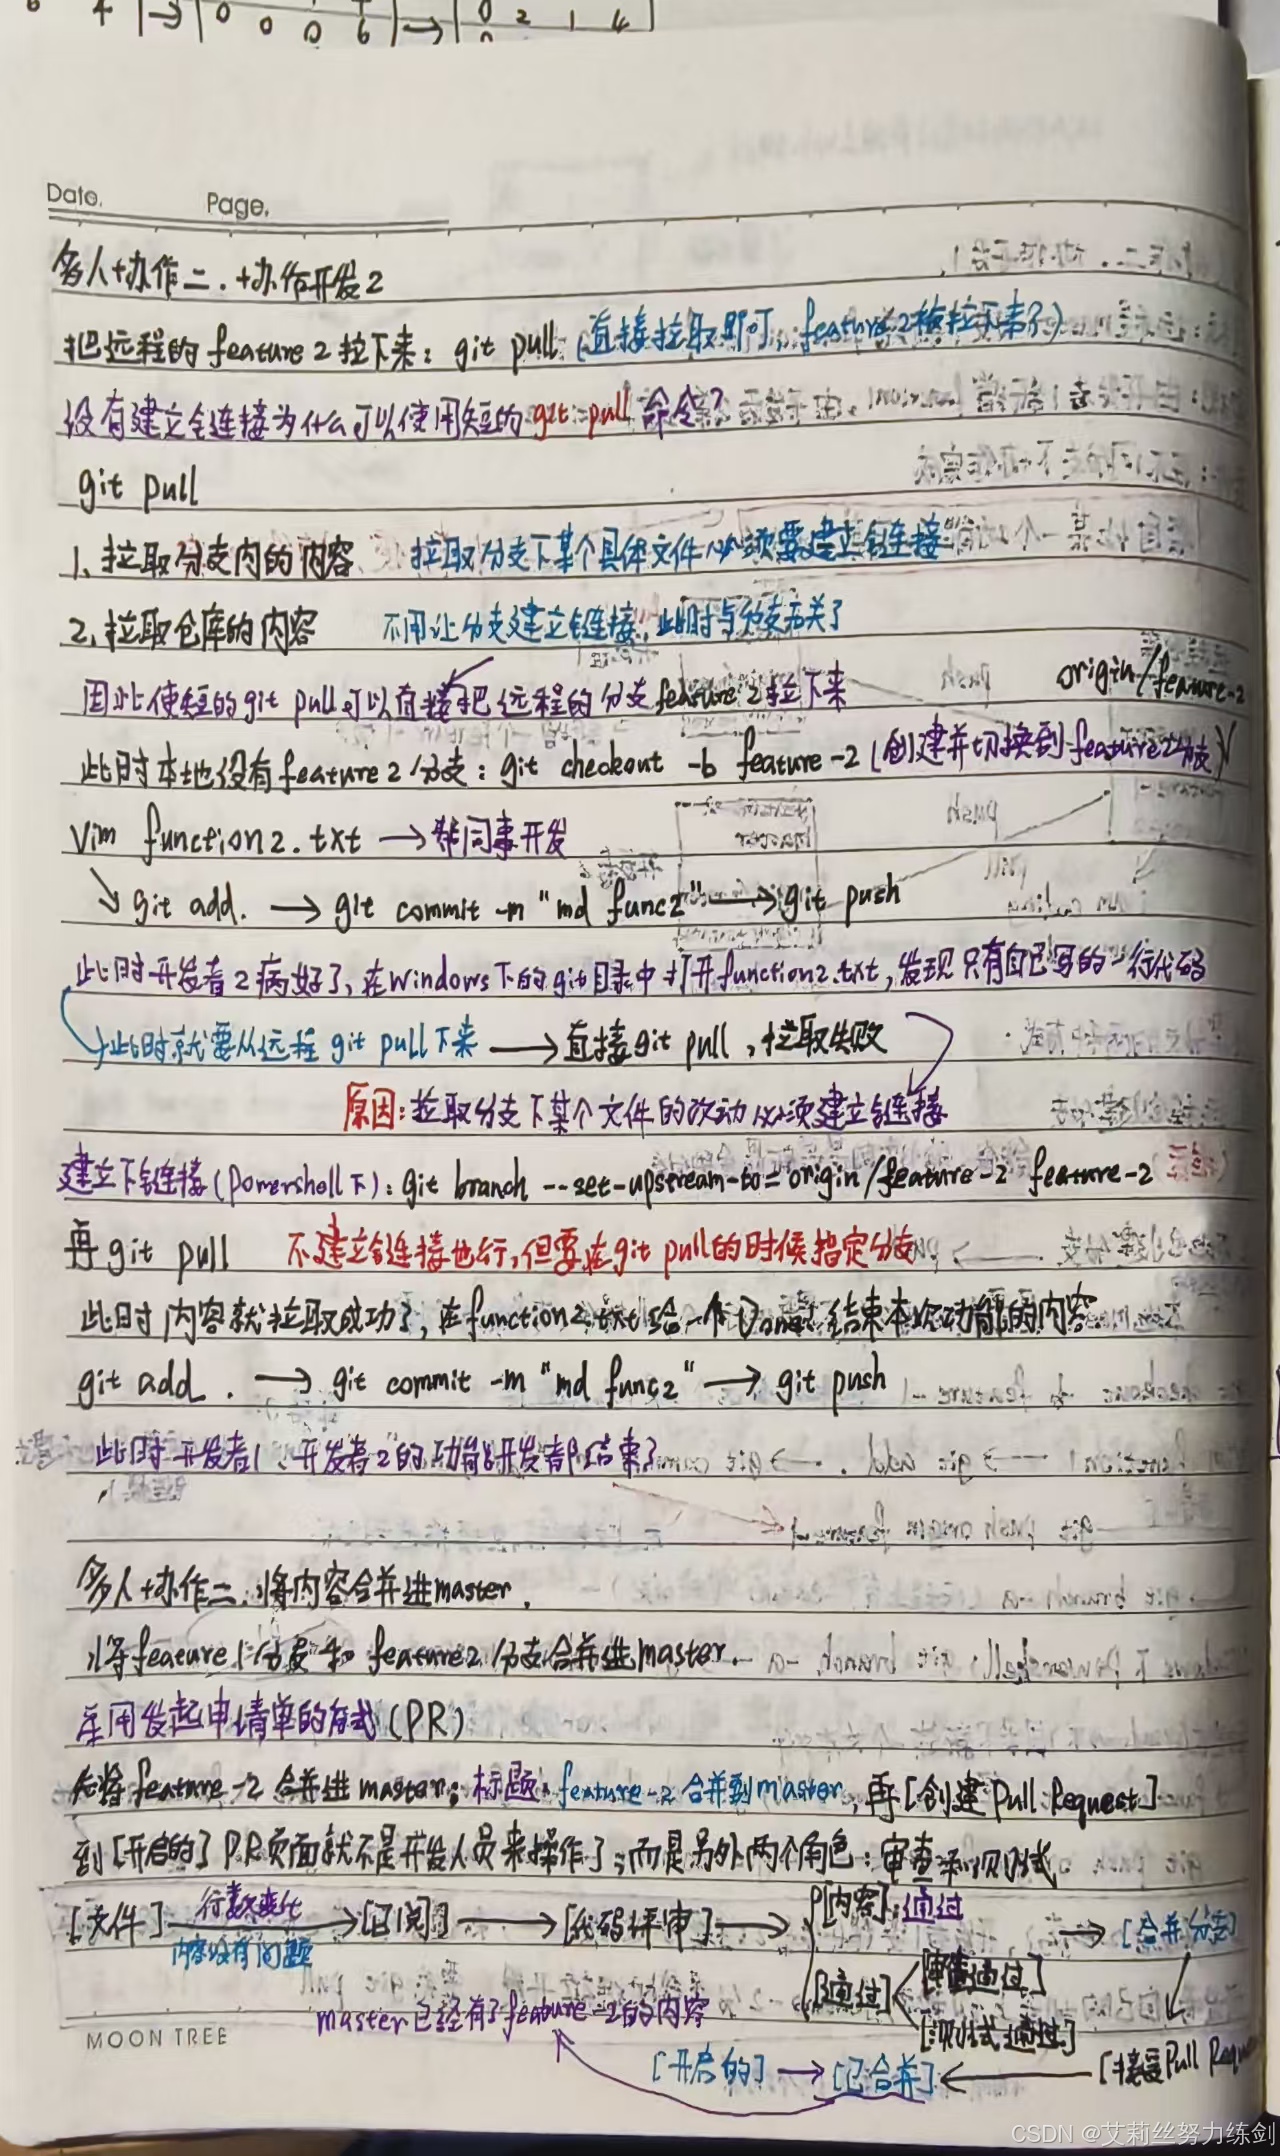 Date.    Page.
多人协作二.协作开发2
把远程的feature2拉下来：git pull（直接拉取即可，feature2被拉下来了）
没有建立链接为什么可以使用短的git pull命令？
git pull
1、拉取分支内的内容    拉取分支下某个具体文件必须要建立链接
2、拉取仓库的内容    不用让分支建立链接，此时与分支无关了
因此使短的git pull可以直接把远程的分支feature2拉下来
origin/feature-2
此时本地没有feature2分支：git checkout -b feature-2（创建并切换到feature2分支）
Vim function2.txt → 帮同事开发
git add. → git commit -m "md func2" → git push
此时开发者2病好了，在windows下的git目录中打开function2.txt，发现只有自己写的一行代码
此时就要从远程git pull下来 → 直接git pull，拉取失败
原因：拉取分支下某个文件的改动必须建立链接
建立下链接(powershell下)：git branch --set-upstream-to=origin/feature-2 feature-2
再git pull    不建立链接也行，但要在git pull的时候指定分支
此时内容就拉取成功了，在function2.txt给一个Done!结束本次功能的内容
git add . → git commit -m "md func2" → git push
此时开发者1、开发者2的功能开发都结束了
多人协作二：将内容合并进master.
将feature1分支和feature2分支合并进master.
采用发起申请单的方式(PR)
先将feature-2合并进master；标题：feature-2合并到master，再[创建Pull Request]
到[开启的]PR页面就不是开发人员来操作了；而是另外两个角色：审查和测试
[文件] 行数变化 内容没有问题 → [已阅] → [代码评审] → [内容]：通过 → [合并分支]
[通过] [审查通过]
[测试通过]
master已经有了feature-2的内容
MOON TREE
[开启的] → [已合并] ← [接受Pull Requ
CSDN @艾莉丝努力练剑